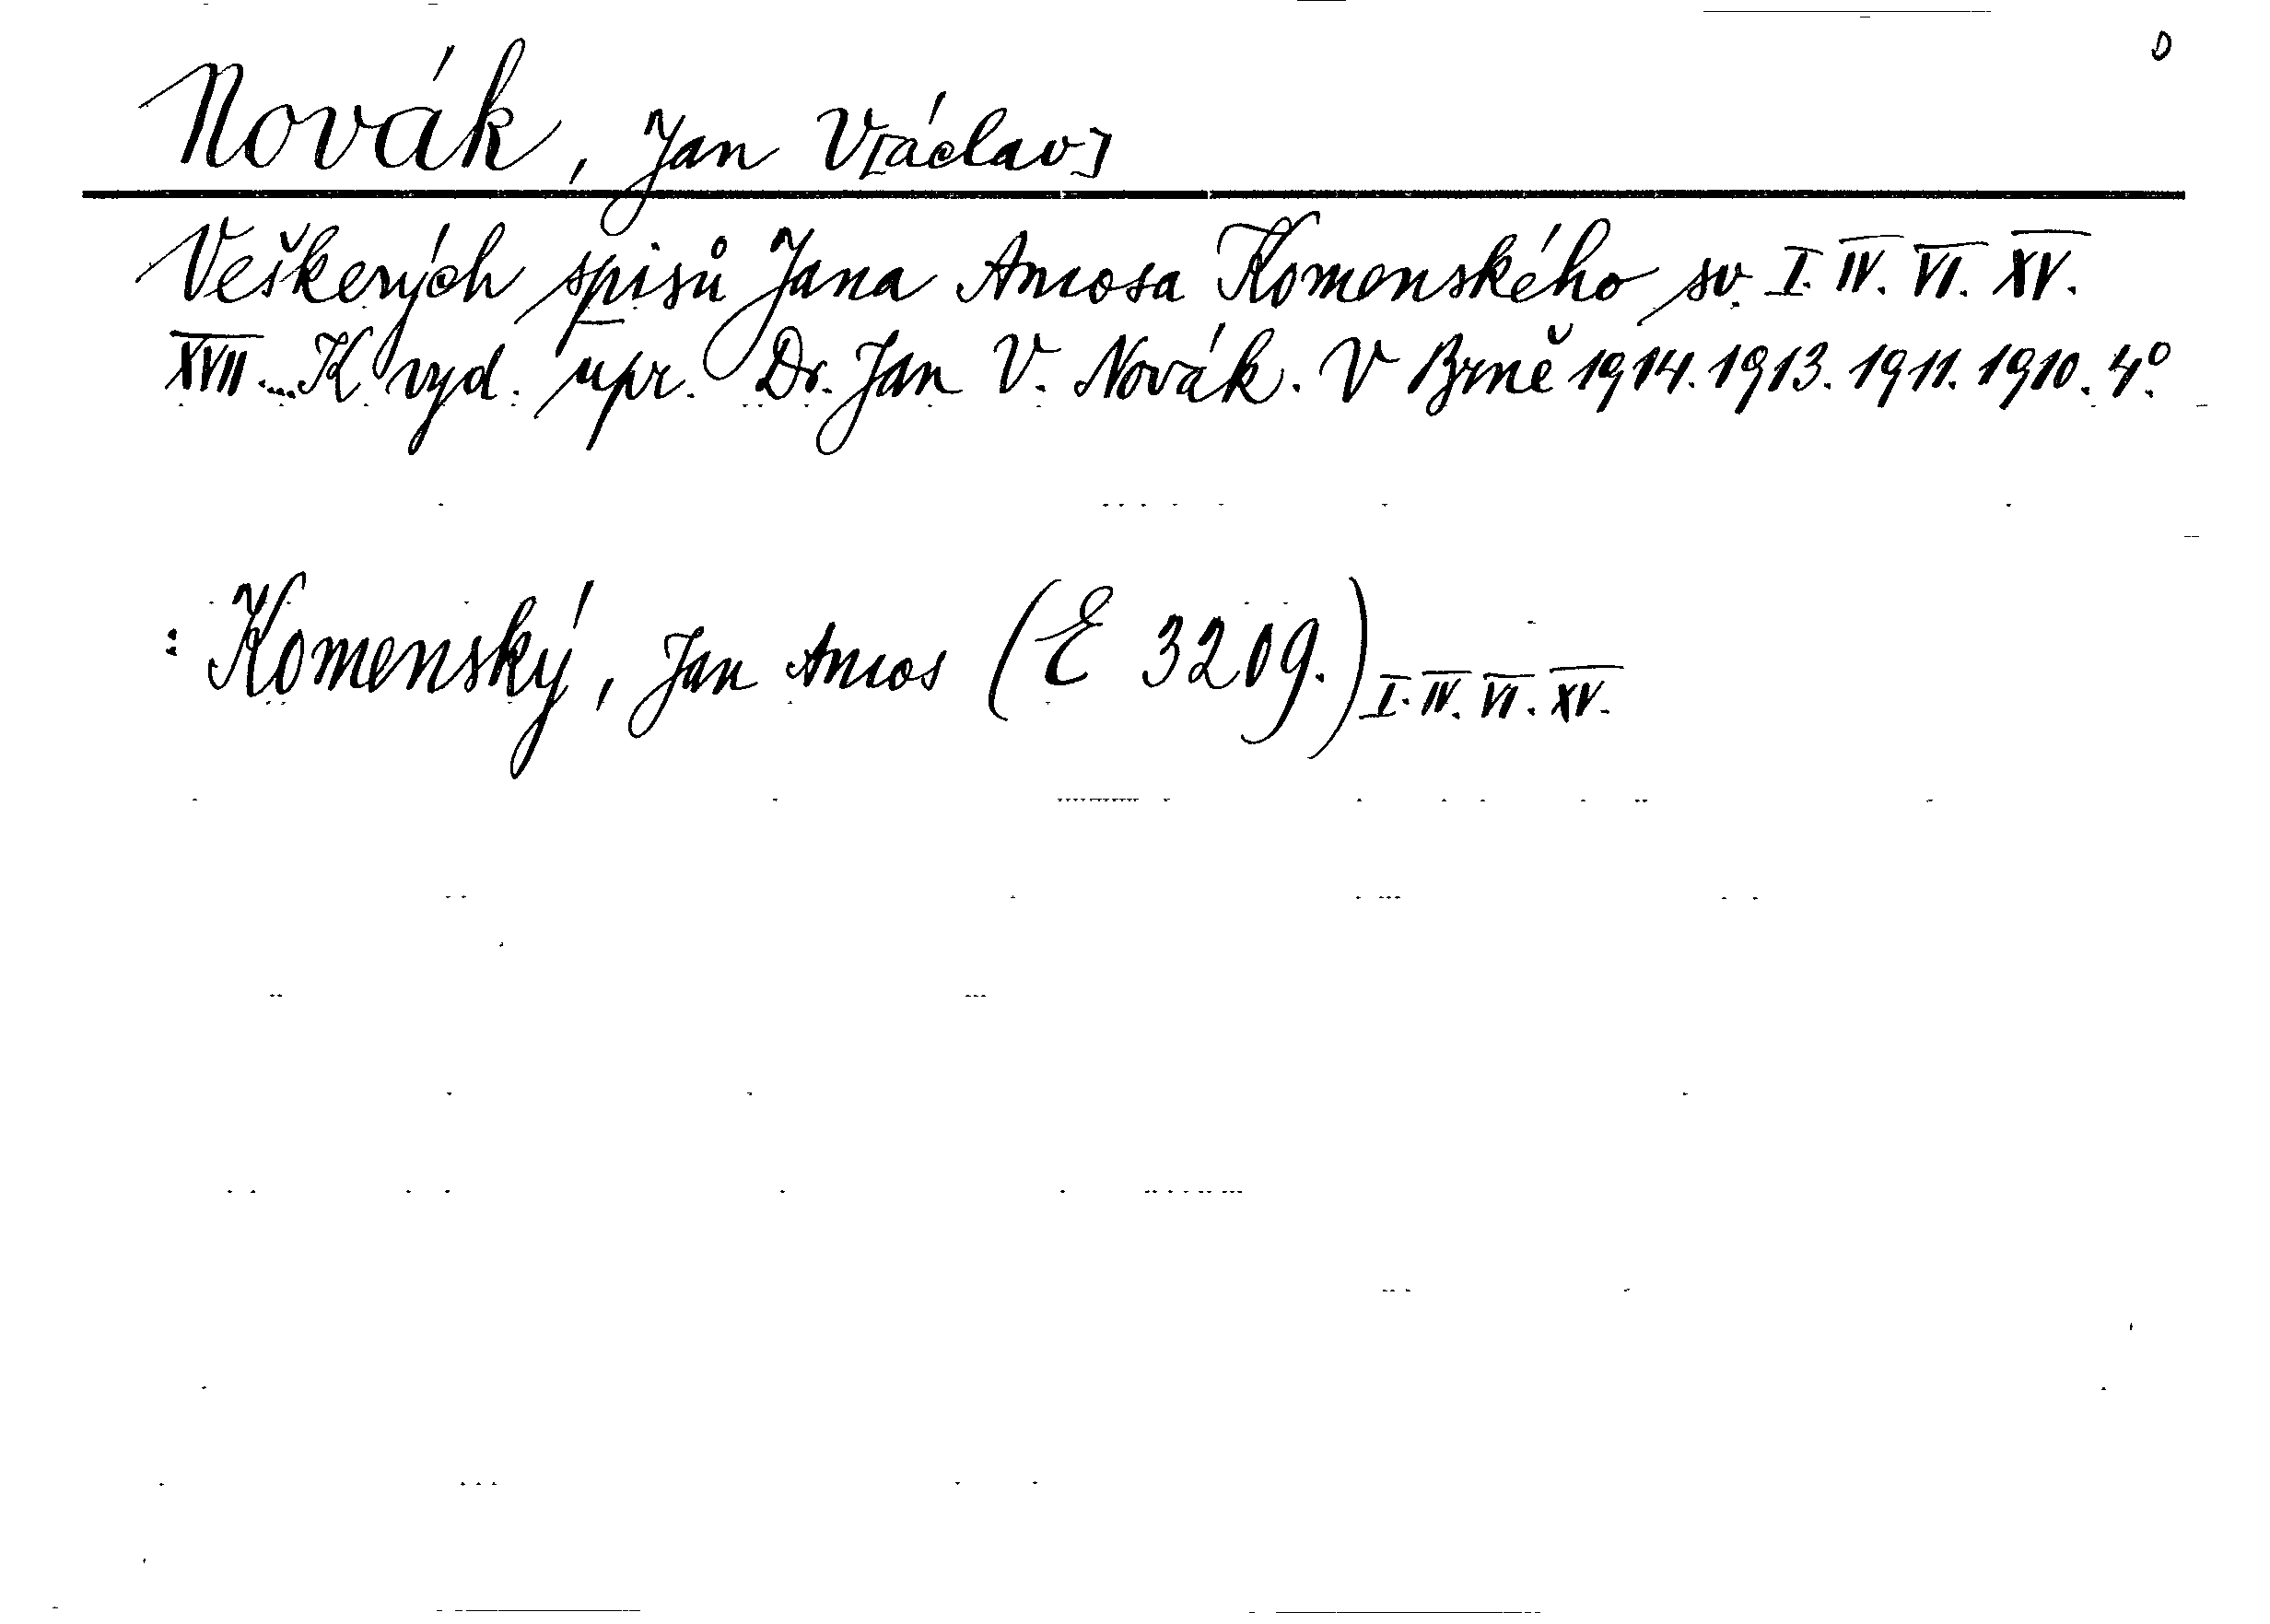 D
Novák, Jan V[áclav]
Veškerých spisů Jana Amosa Komenského sv. I. IV. VI. XV.
XVII ... K vyd. upr. Dr. Jan V. Novák. V Brně 1914. 1913. 1911. 1910. 4°.
: Komenský, Jan Amos (E 3209.) I. IV. VI. XV.